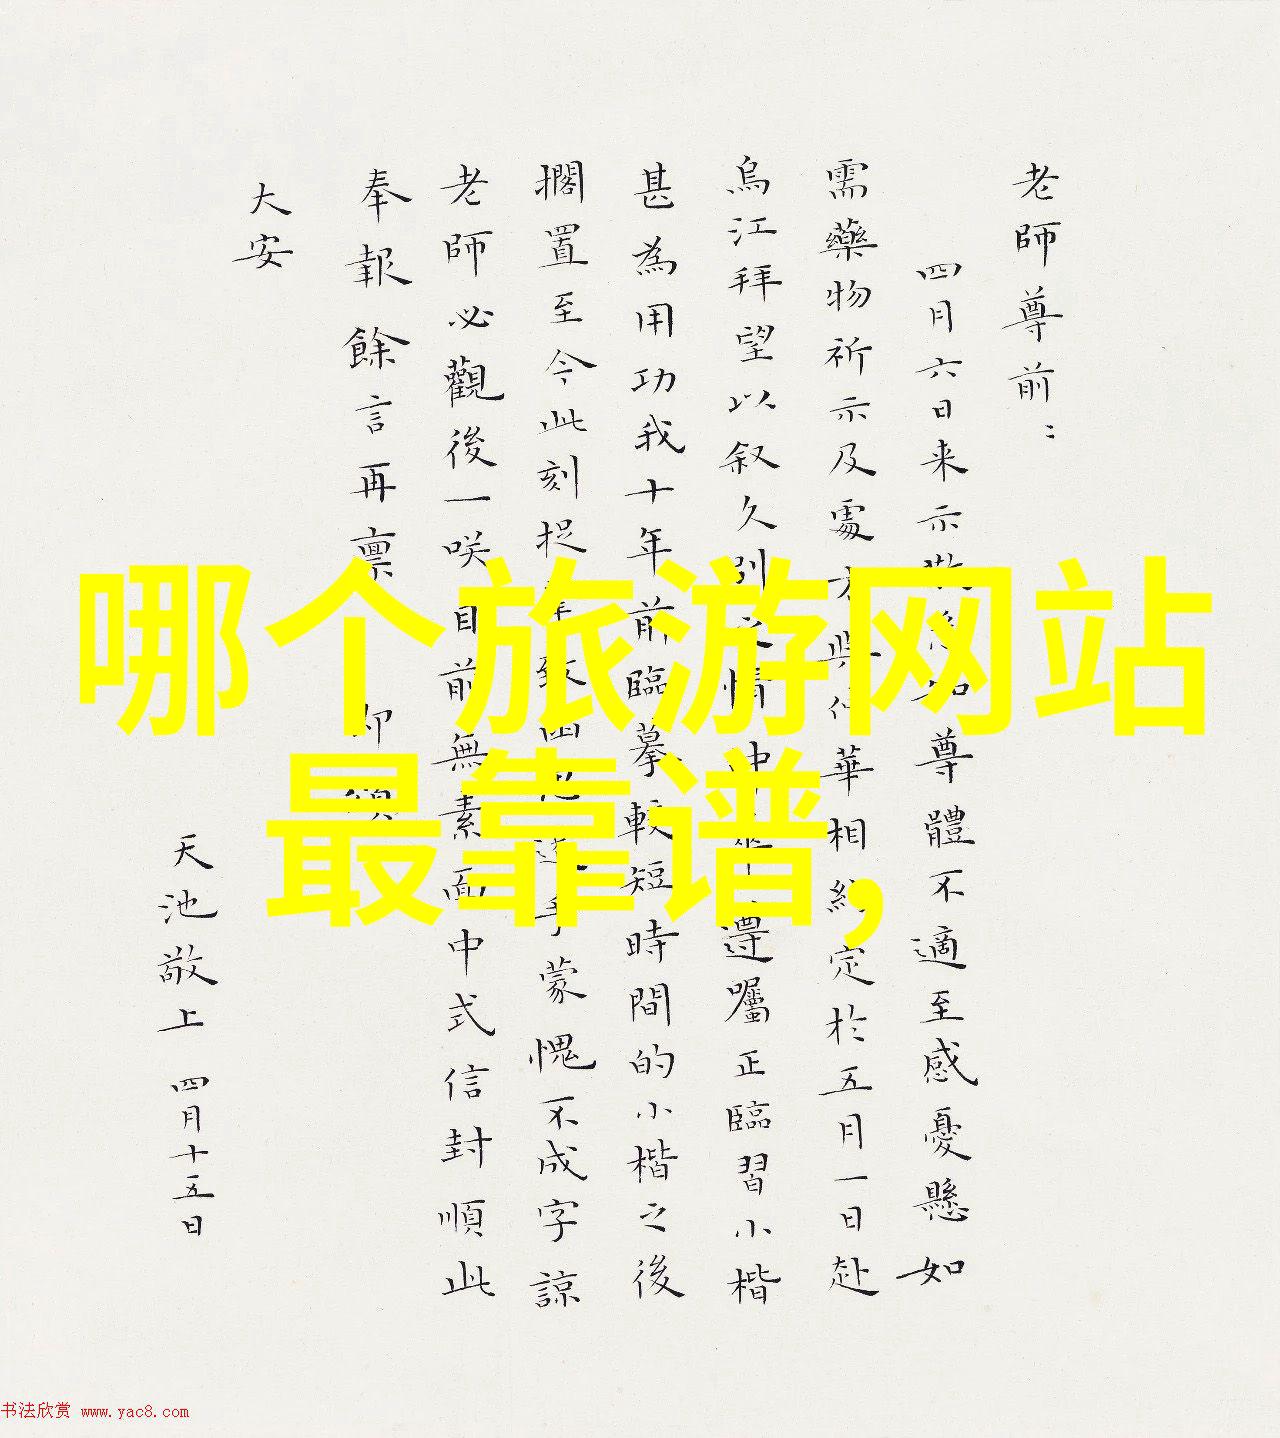 老師尊前：
四月六日来示敬悉知尊體不適至感憂懸如
需藥物祈示及處方與仲華相約定於五月一日赴
烏江拜望以叙久别之情
遵囑正臨習小楷
甚為用功我十年前臨摹較短時間的小楷之後
擱置至今此刻捉
手蒙愧不成字諒
老師必觀後一咲目前無素面中式信封順此
奉報餘言再禀即頌
大安
天池敬上 四月十五日
哪个旅游网站
最靠谱,
书法欣赏 www.yac8.com